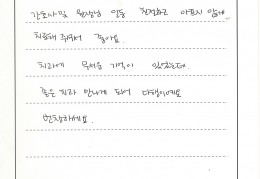 간호사및 원장님 일동 친절하고 아프지 않게
치료해 주셔서 좋아요.
치과에 무서운 기억이 있었는데
좋은 치과 만나게 되어 다행이예요
번창하세요.